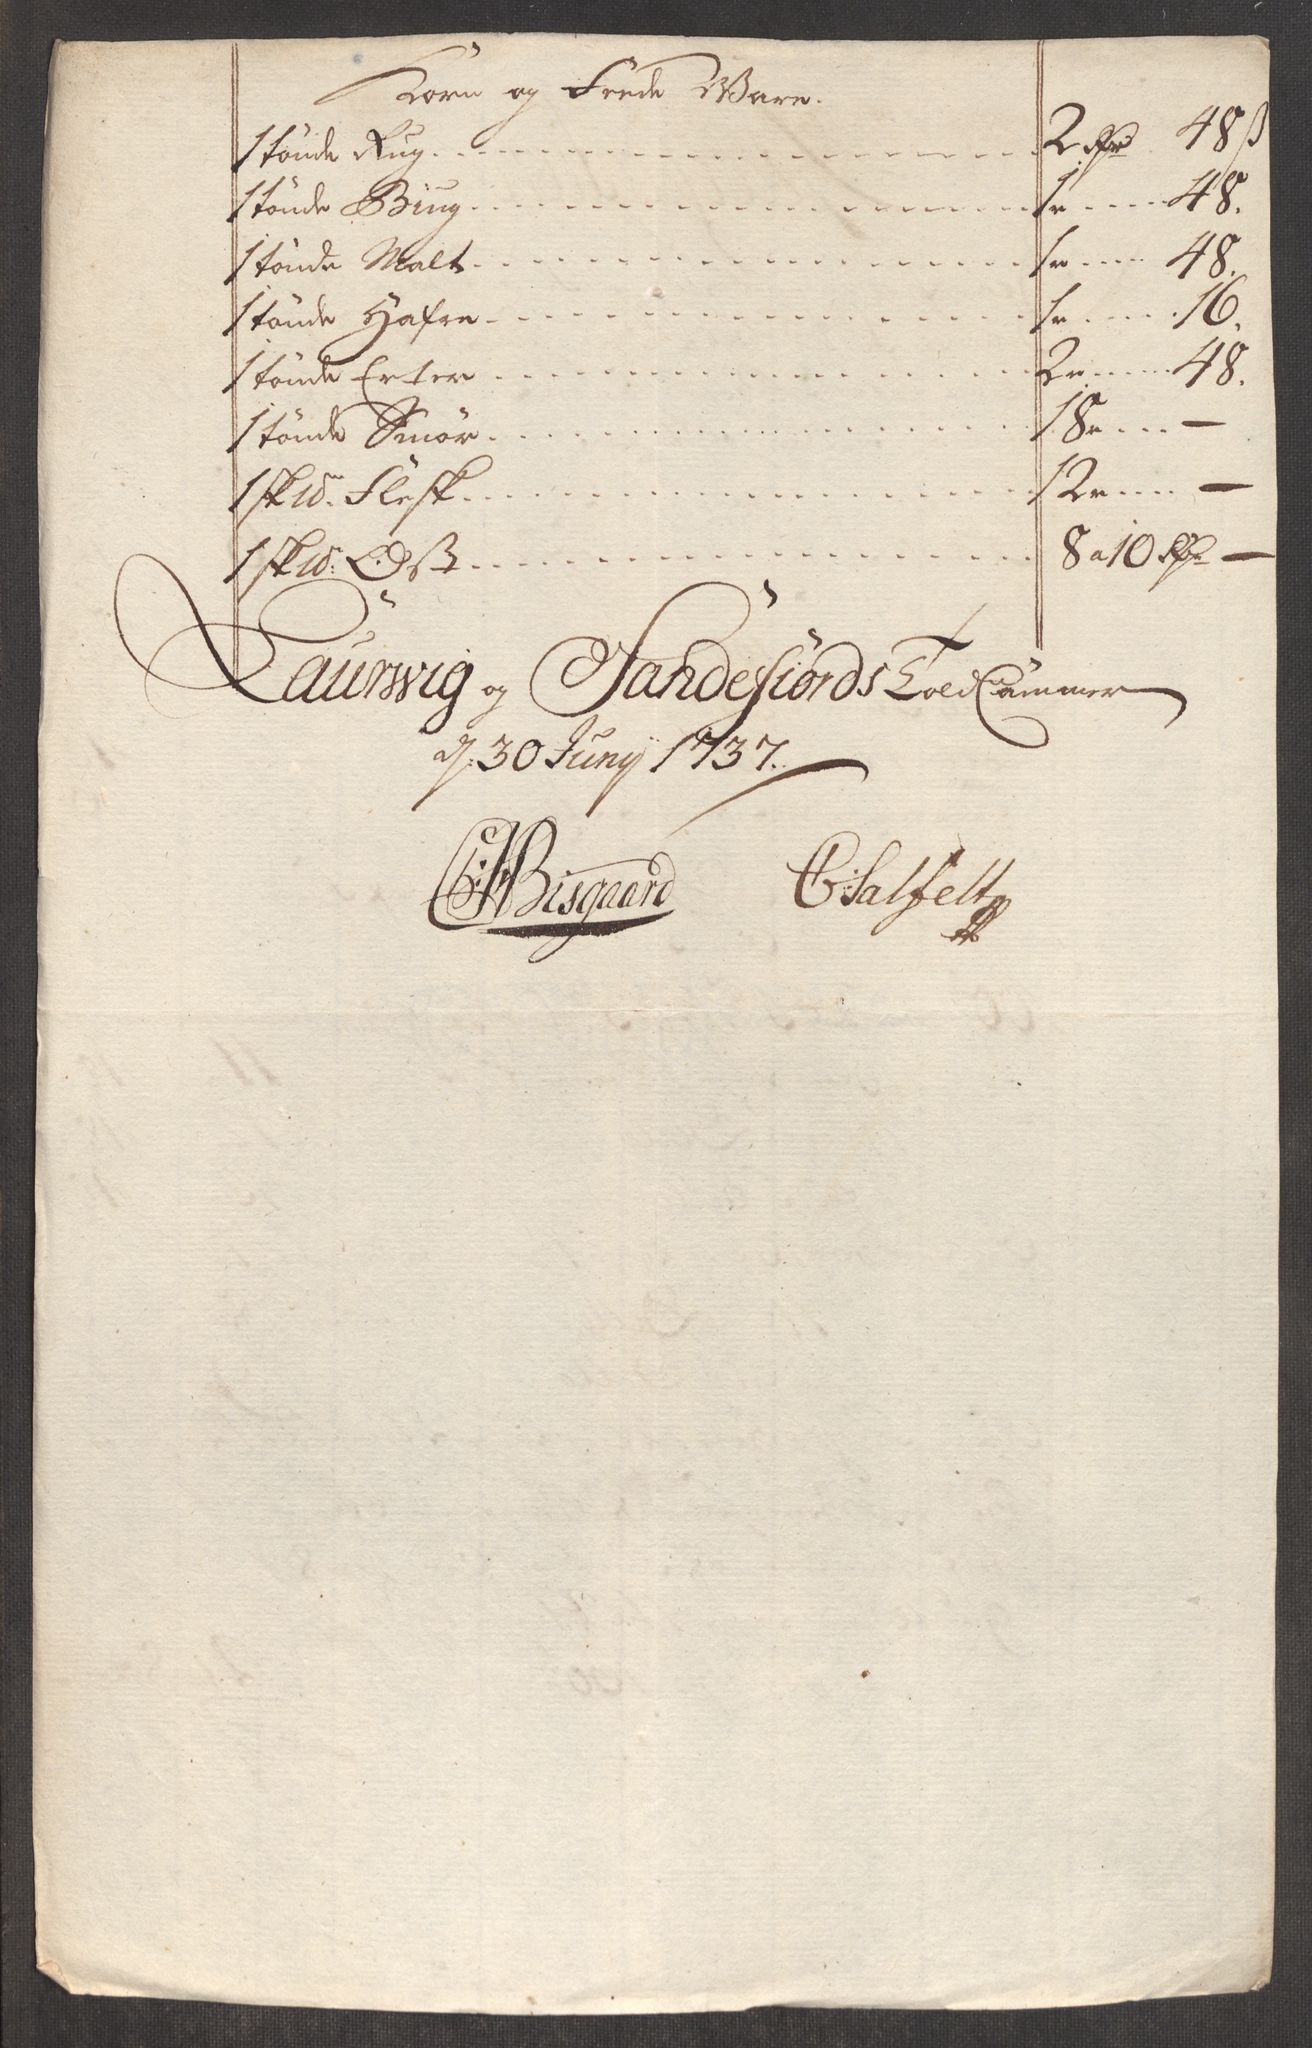 Korn og Fede Ware.
1 tønde Rug . . . . . 2 Rdr 48 ß
1 tønde Biug . . . . . 1 r . . . 48.
1 tønde Malt . . . . . 1 r . . . 48.
1 tønde Hafre . . . . . 1 r . . . 16.
1 tønde Erter . . . . . 2 r . . . 48.
1 tønde Smör . . . . . 18 r . . . —
1 sk℔. Flesk . . . . . 12 r . . . —
1 sk℔: Ost . . . . . 8 a 10 Rdr —
Laurwig og Sandefiords Told Cammer
d: 30 Juny 1737.
Bisgaard C: Salfelt